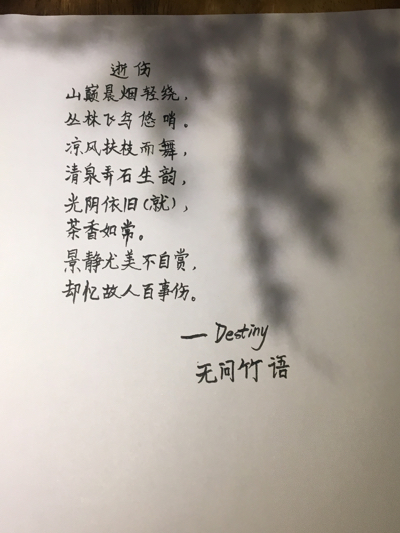 逝伤
山巅晨烟轻绕，
丛林飞鸟悠哨。
凉风扶枝而舞，
清泉弄石生韵，
光阴依旧(就)，
茶香如常。
景静尤美不自赏，
却忆故人百事伤。
— Destiny
无问竹语